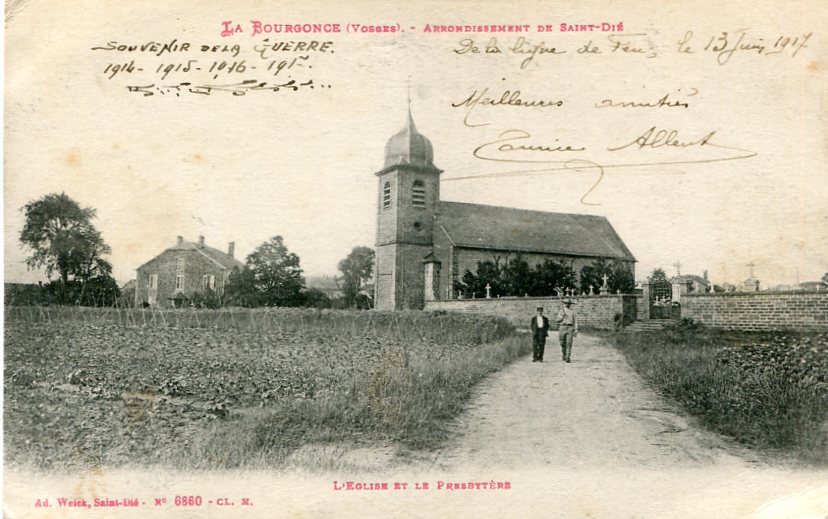 La Bourgonce (Vosges). - Arrondissement de Saint-Dié
Souvenir de la Guerre.
1914 - 1915 - 1916 - 191
De la ligne de Feu, le 13 Juin 1917
Meilleures amitiés
Maurice Allent
L'Eglise et le Presbytère
Ad. Weick, Saint-Dié - N° 6860 - CL. M.